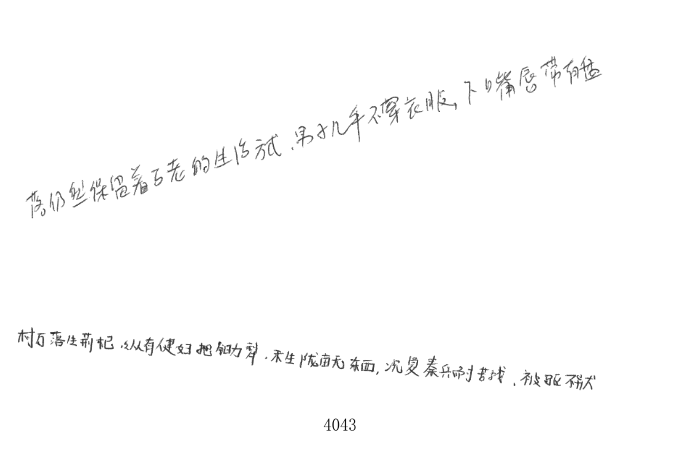 落仍然保留着古老的生活方式,男子几乎不穿衣服,下嘴唇带有盘
村万落生荆杞。纵有健妇把锄犁,禾生陇亩无东西,况复秦兵耐苦战,被驱不异犬
4043